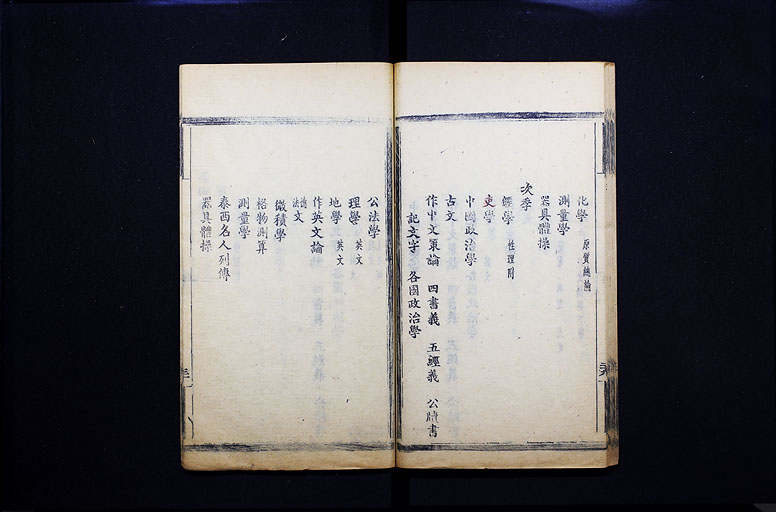 化學 原質總論
測量學
器具體操
次季
經學 性理附
史學
中國政治學
古文
作中文策論 四書義 五經義 公牘書
記文字 各國政治學
公法學
理學 英文
地學 英文
作英文論
德法文
微積學
格物測算
測量學
泰西名人列傳
器具體操